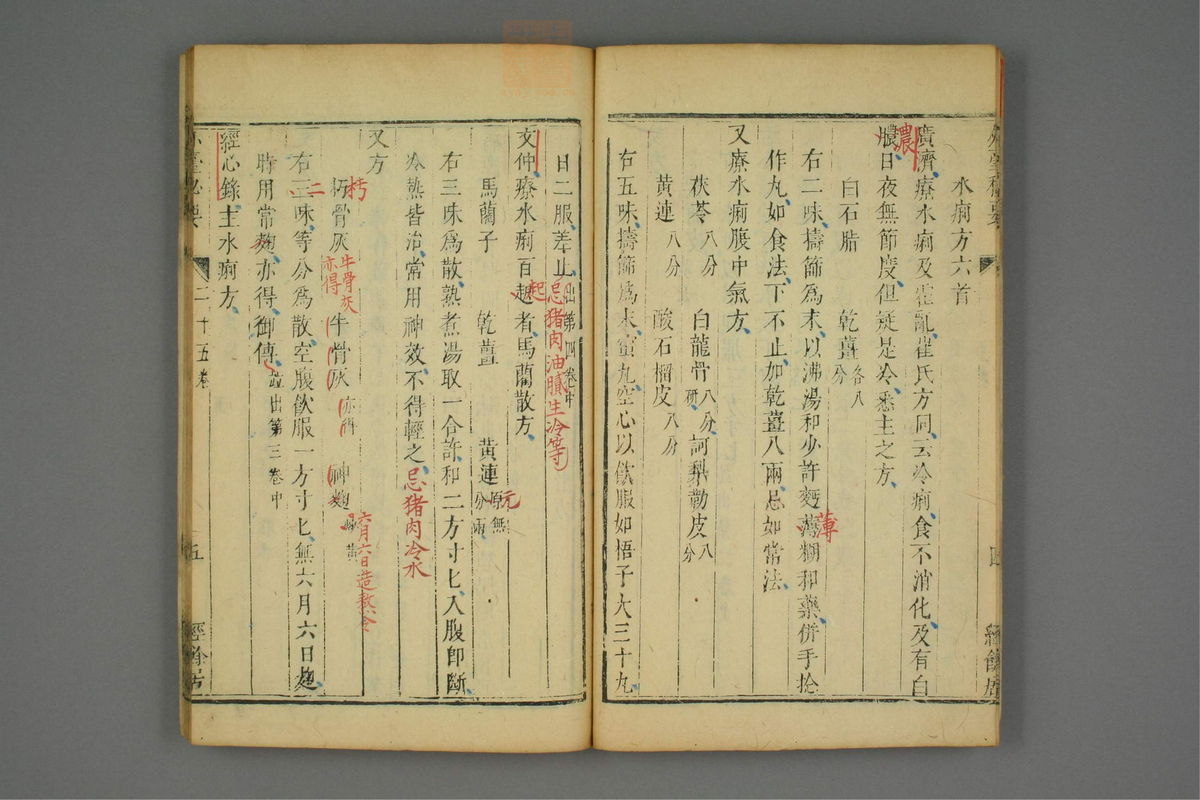 水痢方六首
廣濟療水痢及霍亂崔氏方同云冷痢食不消化及有白
膿日夜無節度但疑是冷悉主之方
濃
白石脂 乾薑各八分
右二味擣篩為末以沸湯和少許麪薄糊和藥併手捻
薄
作丸如食法下不止加乾薑八兩忌如常法
又療水痢腹中氣方
茯苓八分 白龍骨八分研 訶梨勒皮八分
黃連八分 酸石榴皮八分
右五味擣篩為末蜜丸空心以飲服如梧子大三十九
日二服差止出第四卷中
忌猪肉油膩生冷等
文仲療水痢百起者馬藺散方
起
馬藺子 乾薑 黃連原無分兩
元
右三味為散熟煮湯取一合許和二方寸匕入腹即斷
冷熱皆治常用神效不得輕之
忌猪肉冷水
又方
朽骨灰 牛骨灰亦得 神麴
朽
牛骨灰亦得
六月六日造
右三味等分為散空腹飲服一方寸匕無六月六日麴
二
時用常麴亦得御傳並出第三卷中
經心錄主水痢方
二十五卷
五
經餘居